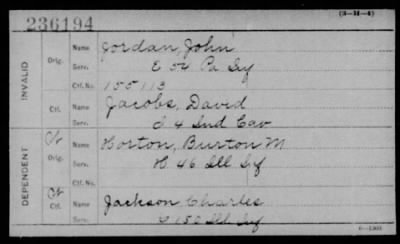 236194
(3-II-4)
INVALID
Orig.
Name Jordan, John
Serv. E 54 Pa Inf
Ctf. No. 155113
Ctf.
Name Jacobs, David
Serv. I 4 Ind Cav
DEPENDENT
Orig.
Name Horton, Burton M
Serv. H 46 Ill Inf
Ctf. No.
Ctf.
Name Jackson Charles
Serv. 150 Ill Inf